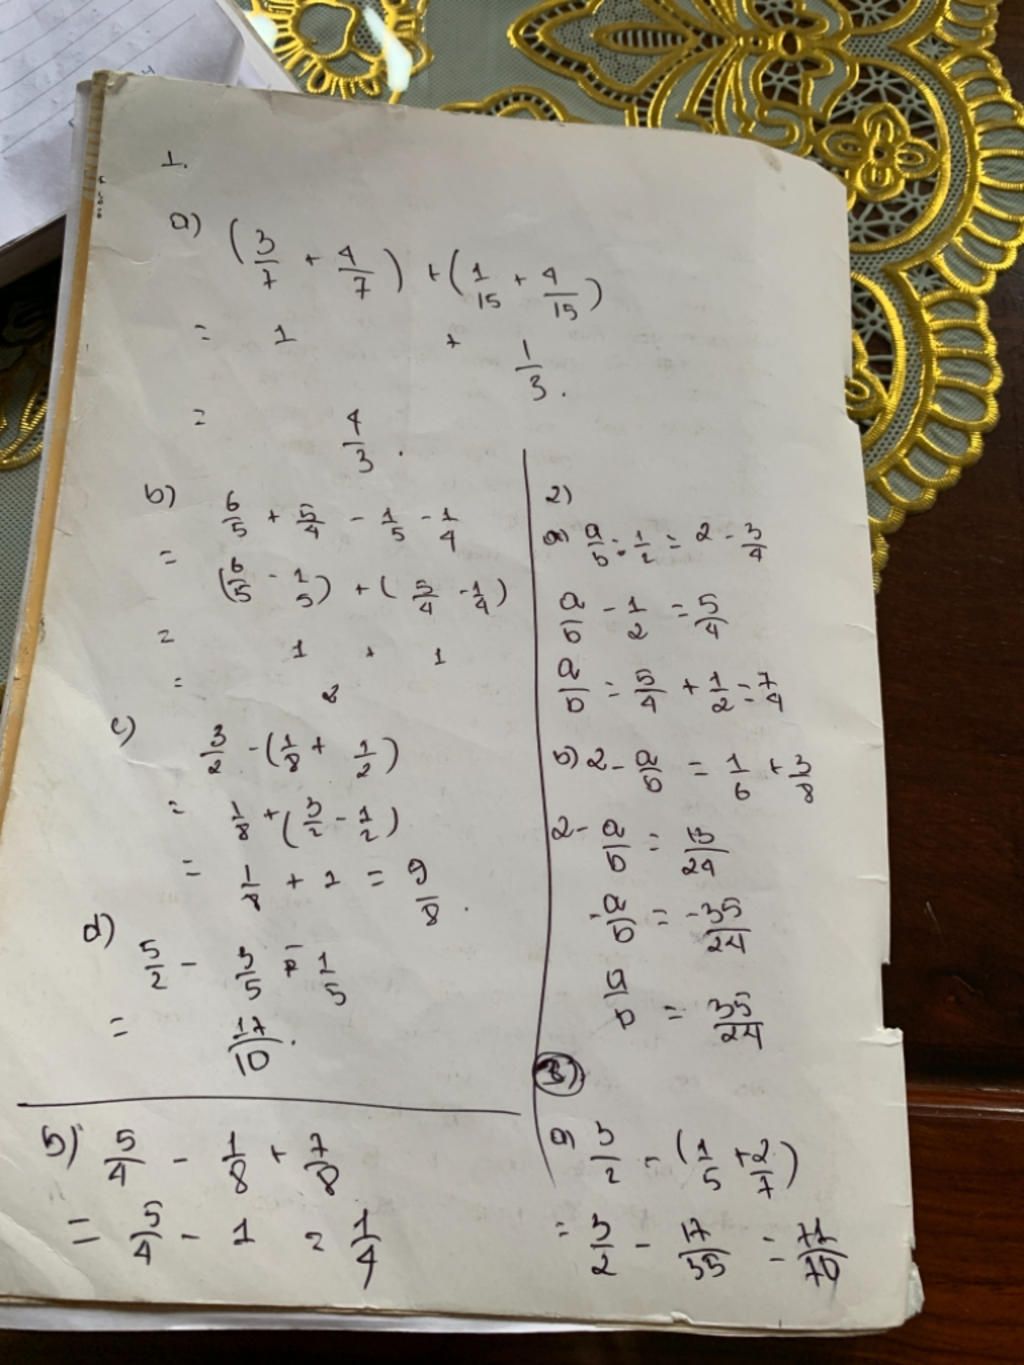 1.
a) (3/7 + 4/7) + (1/15 + 4/15)
= 1 + 1/3.
= 4/3.
b) 6/5 + 5/4 - 1/5 - 1/4
= (6/5 - 1/5) + (5/4 - 1/4)
= 1 + 1
= 2
c) 3/2 - (1/8 + 1/2)
= 1/8 + (3/2 - 1/2)
= 1/8 + 1 = 9/8.
d) 5/2 - 3/5 - 1/5
= 17/10.
b) 5/4 - 1/8 + 7/8
= 5/4 - 1 = 1/4
2)
a) a/b - 1/2 = 2 - 3/4
a/b - 1/2 = 5/4
a/b = 5/4 + 1/2 = 7/4
b) 2 - a/b = 1/6 + 3/8
2 - a/b = 13/24
-a/b = -35/24
a/b = 35/24
3)
a) 3/2 - (1/5 + 2/7)
= 3/2 - 17/35 = 71/70